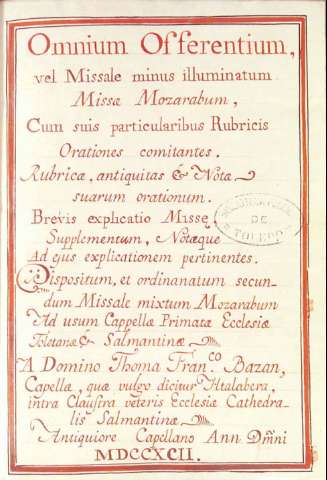 Omnium Offerentium,
vel Missale minus illuminatum
Missæ Mozarabum,
Cum suis particularibus Rubricis
Orationes comitantes.
Rubrica, antiquitas & Nota
suarum orationum.
Brevis explicatio Missę
Supplementum, Notæque
Ad ejus explicationem pertinentes.
Dispositum, et ordinanatum secun-
dum Missale mixtum Mozarabum
Ad usum Cappellæ Primatæ Ecclesiæ
Toletanæ & Salmantinæ
A Domino Thoma Fran.co Bazan,
Capellæ, quæ vulgo dicitur Htalabera,
intra Claustra veteris Ecclesiæ Cathedra-
lis Salmantinæ
Antiquiore Capellano Ann Dm̃ni
MDCCXCII.
DE
TOLEDO